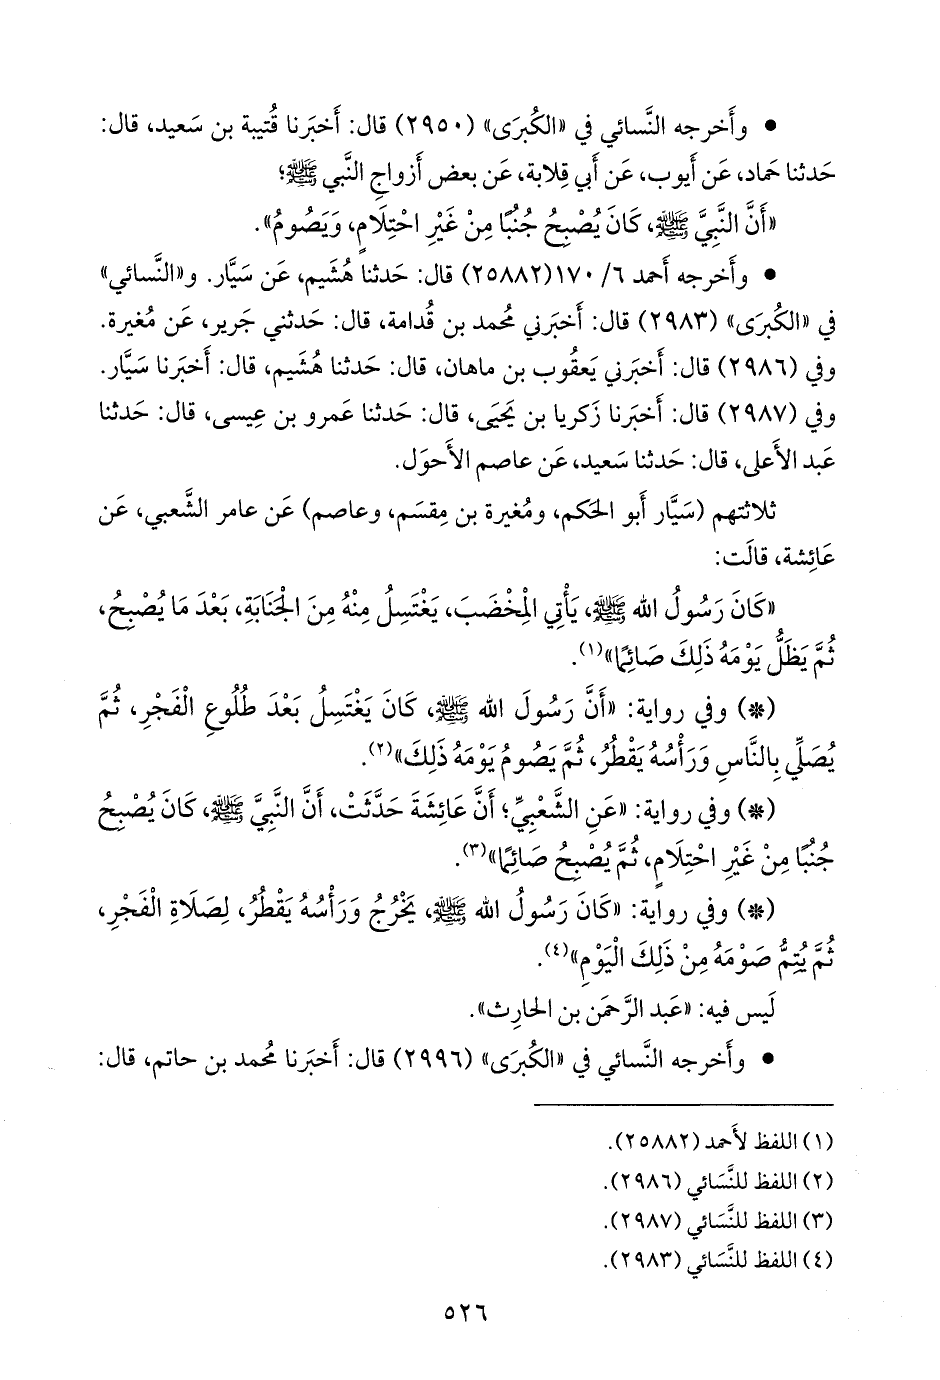 • وأَخرجه النَّسائي في «الكُبرَى» (٢٩٥٠) قال: أَخبَرنا قُتيبة بن سَعيد، قال:
حَدثنا حَماد، عَن أَيوب، عَن أَبي قِلابة، عَن بعض أَزواجِ النَّبي ﷺ؛
«أَنَّ النَّبِيَّ ﷺ، كَانَ يُصْبِحُ جُنُبًا مِنْ غَيْرِ احْتِلَامٍ، وَيَصُومُ».
• وأَخرجه أَحمد ٦/ ١٧٠(٢٥٨٨٢) قال: حَدثنا هُشَيم، عَن سَيَّار. و«النَّسائي»
في «الكُبرَى» (٢٩٨٣) قال: أَخبَرني مُحمد بن قُدامة، قال: حَدثني جَرير، عَن مُغيرة.
وفي (٢٩٨٦) قال: أَخبَرني يَعقُوب بن ماهان، قال: حَدثنا هُشَيم، قال: أَخبَرنا سَيَّار.
وفي (٢٩٨٧) قال: أَخبَرنا زَكريا بن يَحيَى، قال: حَدثنا عَمرو بن عِيسى، قال: حَدثنا
عَبد الأَعلى، قال: حَدثنا سَعيد، عَن عاصم الأَحوَل.
ثلاثتهم (سَيَّار أَبو الحَكم، ومُغيرة بن مِقسَم، وعاصم) عَن عامر الشَّعبي، عَن
عَائِشة، قالَت:
«كَانَ رَسُولُ الله ﷺ، يَأْتِي المِخْضَبَ، يَغْتَسِلُ مِنْهُ مِنَ الْجَنَابَةِ، بَعْدَ مَا يُصْبِحُ،
ثُمَّ يَظَلُّ يَوْمَهُ ذَلِكَ صَائِمًا»(١).
(*) وفي رواية: «أَنَّ رَسُولَ الله ﷺ، كَانَ يَغْتَسِلُ بَعْدَ طُلُوعِ الْفَجْرِ، ثُمَّ
يُصَلِّي بِالنَّاسِ وَرَأْسُهُ يَقْطُرُ، ثُمَّ يَصُومُ يَوْمَهُ ذَلِكَ»(٢).
(*) وفي رواية: «عَنِ الشَّعْبِيِّ؛ أَنَّ عَائِشَةَ حَدَّثَتْ، أَنَّ النَّبِيَّ ﷺ، كَانَ يُصْبِحُ
جُنُبًا مِنْ غَيْرِ احْتِلَامٍ، ثُمَّ يُصْبِحُ صَائِمًا»(٣).
(*) وفي رواية: «كَانَ رَسُولُ الله ﷺ، يَخْرُجُ وَرَأْسُهُ يَقْطُرُ، لِصَلَاةِ الْفَجْرِ،
ثُمَّ يُتِمُّ صَوْمَهُ مِنْ ذَلِكَ الْيَوْمِ»(٤).
لَيس فيه: «عَبد الرَّحمَن بن الحارِث».
• وأَخرجه النَّسائي في «الكُبرَى» (٢٩٩٦) قال: أَخبَرنا مُحمد بن حاتم، قال:
(١) اللفظ لأَحمد (٢٥٨٨٢).
(٢) اللفظ للنَّسَائي (٢٩٨٦).
(٣) اللفظ للنَّسَائي (٢٩٨٧).
(٤) اللفظ للنَّسَائي (٢٩٨٣).
٥٢٦